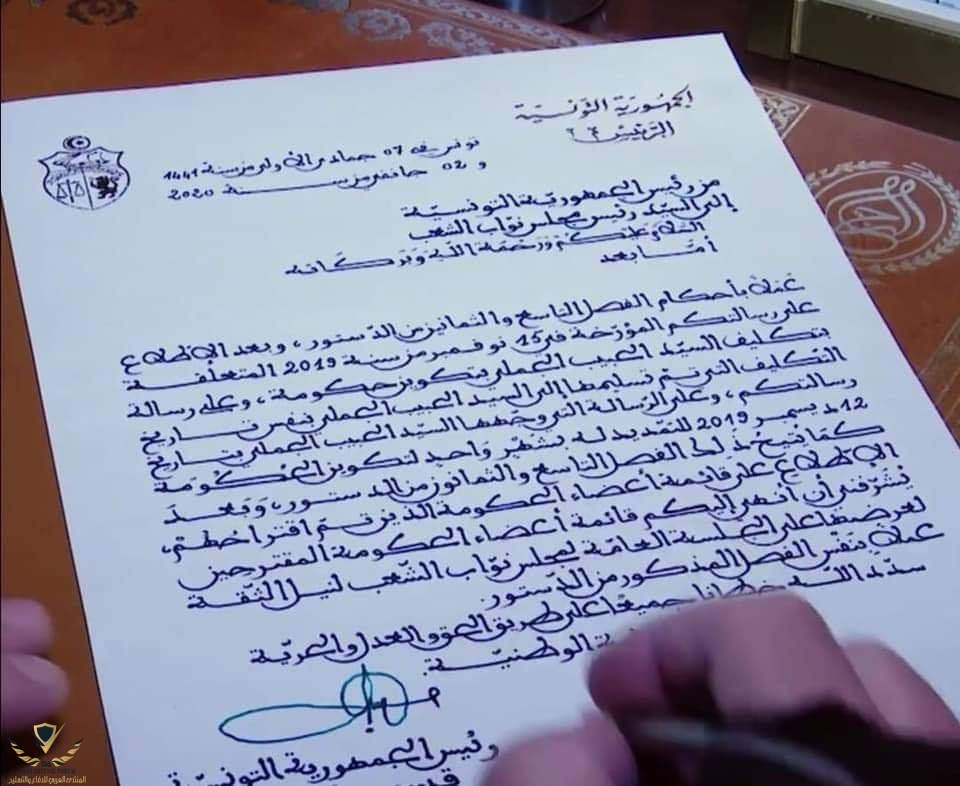 الجمهورية التونسية
الرئيس
تونس في 07 جمادى الأولى من سنة 1441
و 02 جانفي من سنة 2020
من رئيس الجمهورية التونسيّة
إلى السيّد رئيس مجلس نوّاب الشعب
السّلام عليكم ورحمة اللّه وبركاته
أمّا بعد
عملا بأحكام الفصل التاسع والثمانين من الدّستور، وبعد الإطلاع
على رسالتكم المؤرّخة في 15 نوفمبر من سنة 2019 المتعلّقة
بتكليف السيّد الحبيب الجملي بتكوين حكومة، وعلى رسالة
التكليف التي تمّ تسليمها إلى السيد الحبيب الجملي بنفس تاريخ
رسالتكم، وعلى الرّسالة التي وجّهها السيّد الحبيب الجملي بتاريخ
12 ديسمبر 2019 للتمديد له بشهر واحد لتكوين الحكومة
كما يُتيح ذلك الفصل التاسع والثمانون من الدستور، وبعد
الإطلاع على قائمة أعضاء الحكومة الذين تمّ اقتراحهم،
يُشرّفني أن أنهي إليكم قائمة أعضاء الحكومة المقترحين
لعرضها على الجلسة العامّة لمجلس نوّاب الشّعب لنيل الثّقة
عملا بنفس الفصل المذكور من الدّستور.
سدّد اللّه خطانا جميعًا على طريق الحق والعدل والحريّة
الوطنيّة.
رئيس الجمهورية التونسيّة
المنتدى العربي للدفاع والتسليح